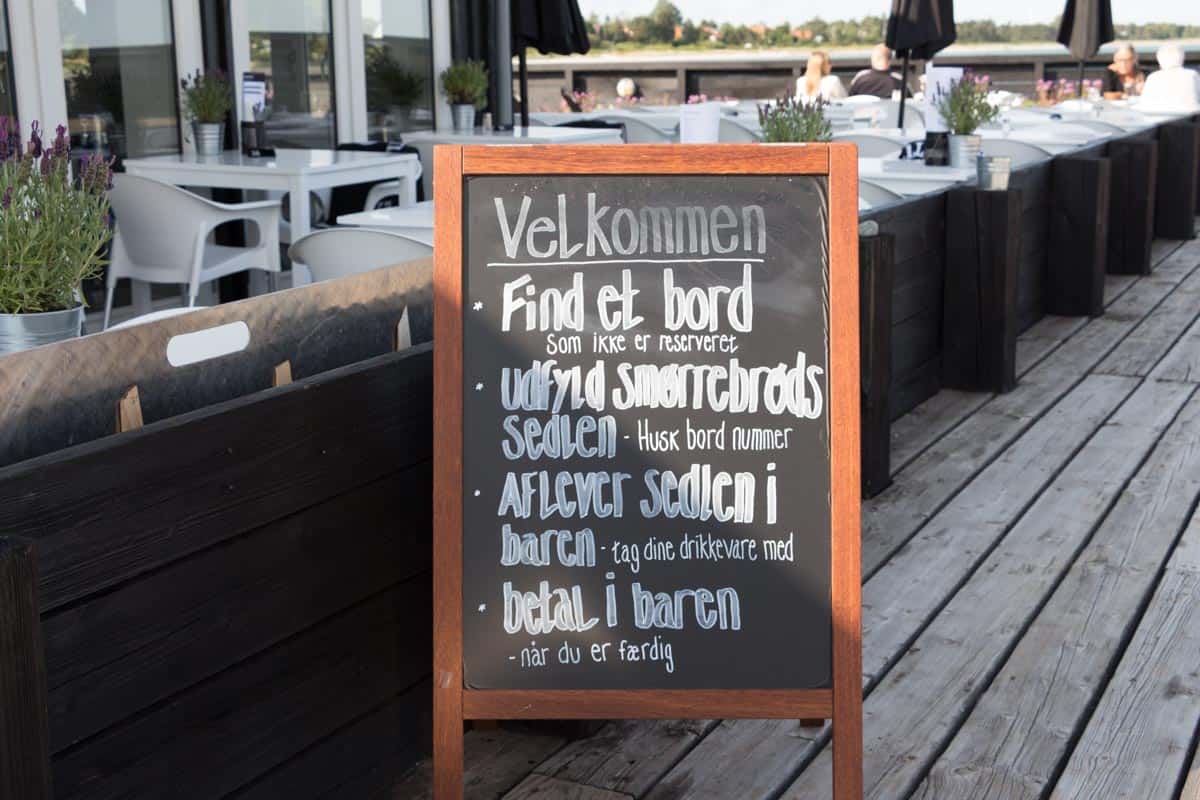 Velkommen
* Find et bord
Som ikke er reserveret
* Udfyld smørrebrøds
sedlen - Husk bord nummer
* Aflever sedlen i
baren - tag dine drikkevare med
* betal i baren
- når du er færdig